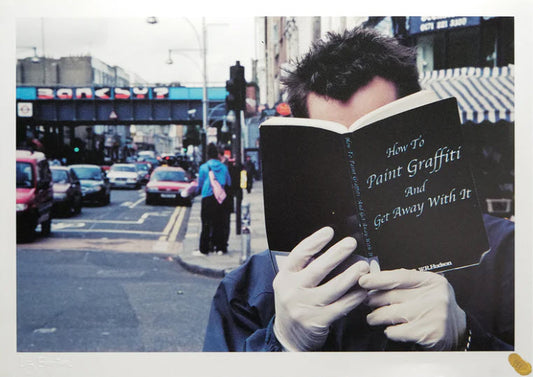 BANKSY?
0171 221 3320
How To
Paint Graffiti
And
Get Away With It
How To Paint Graffiti And Get Away With It
W.H.Hudson